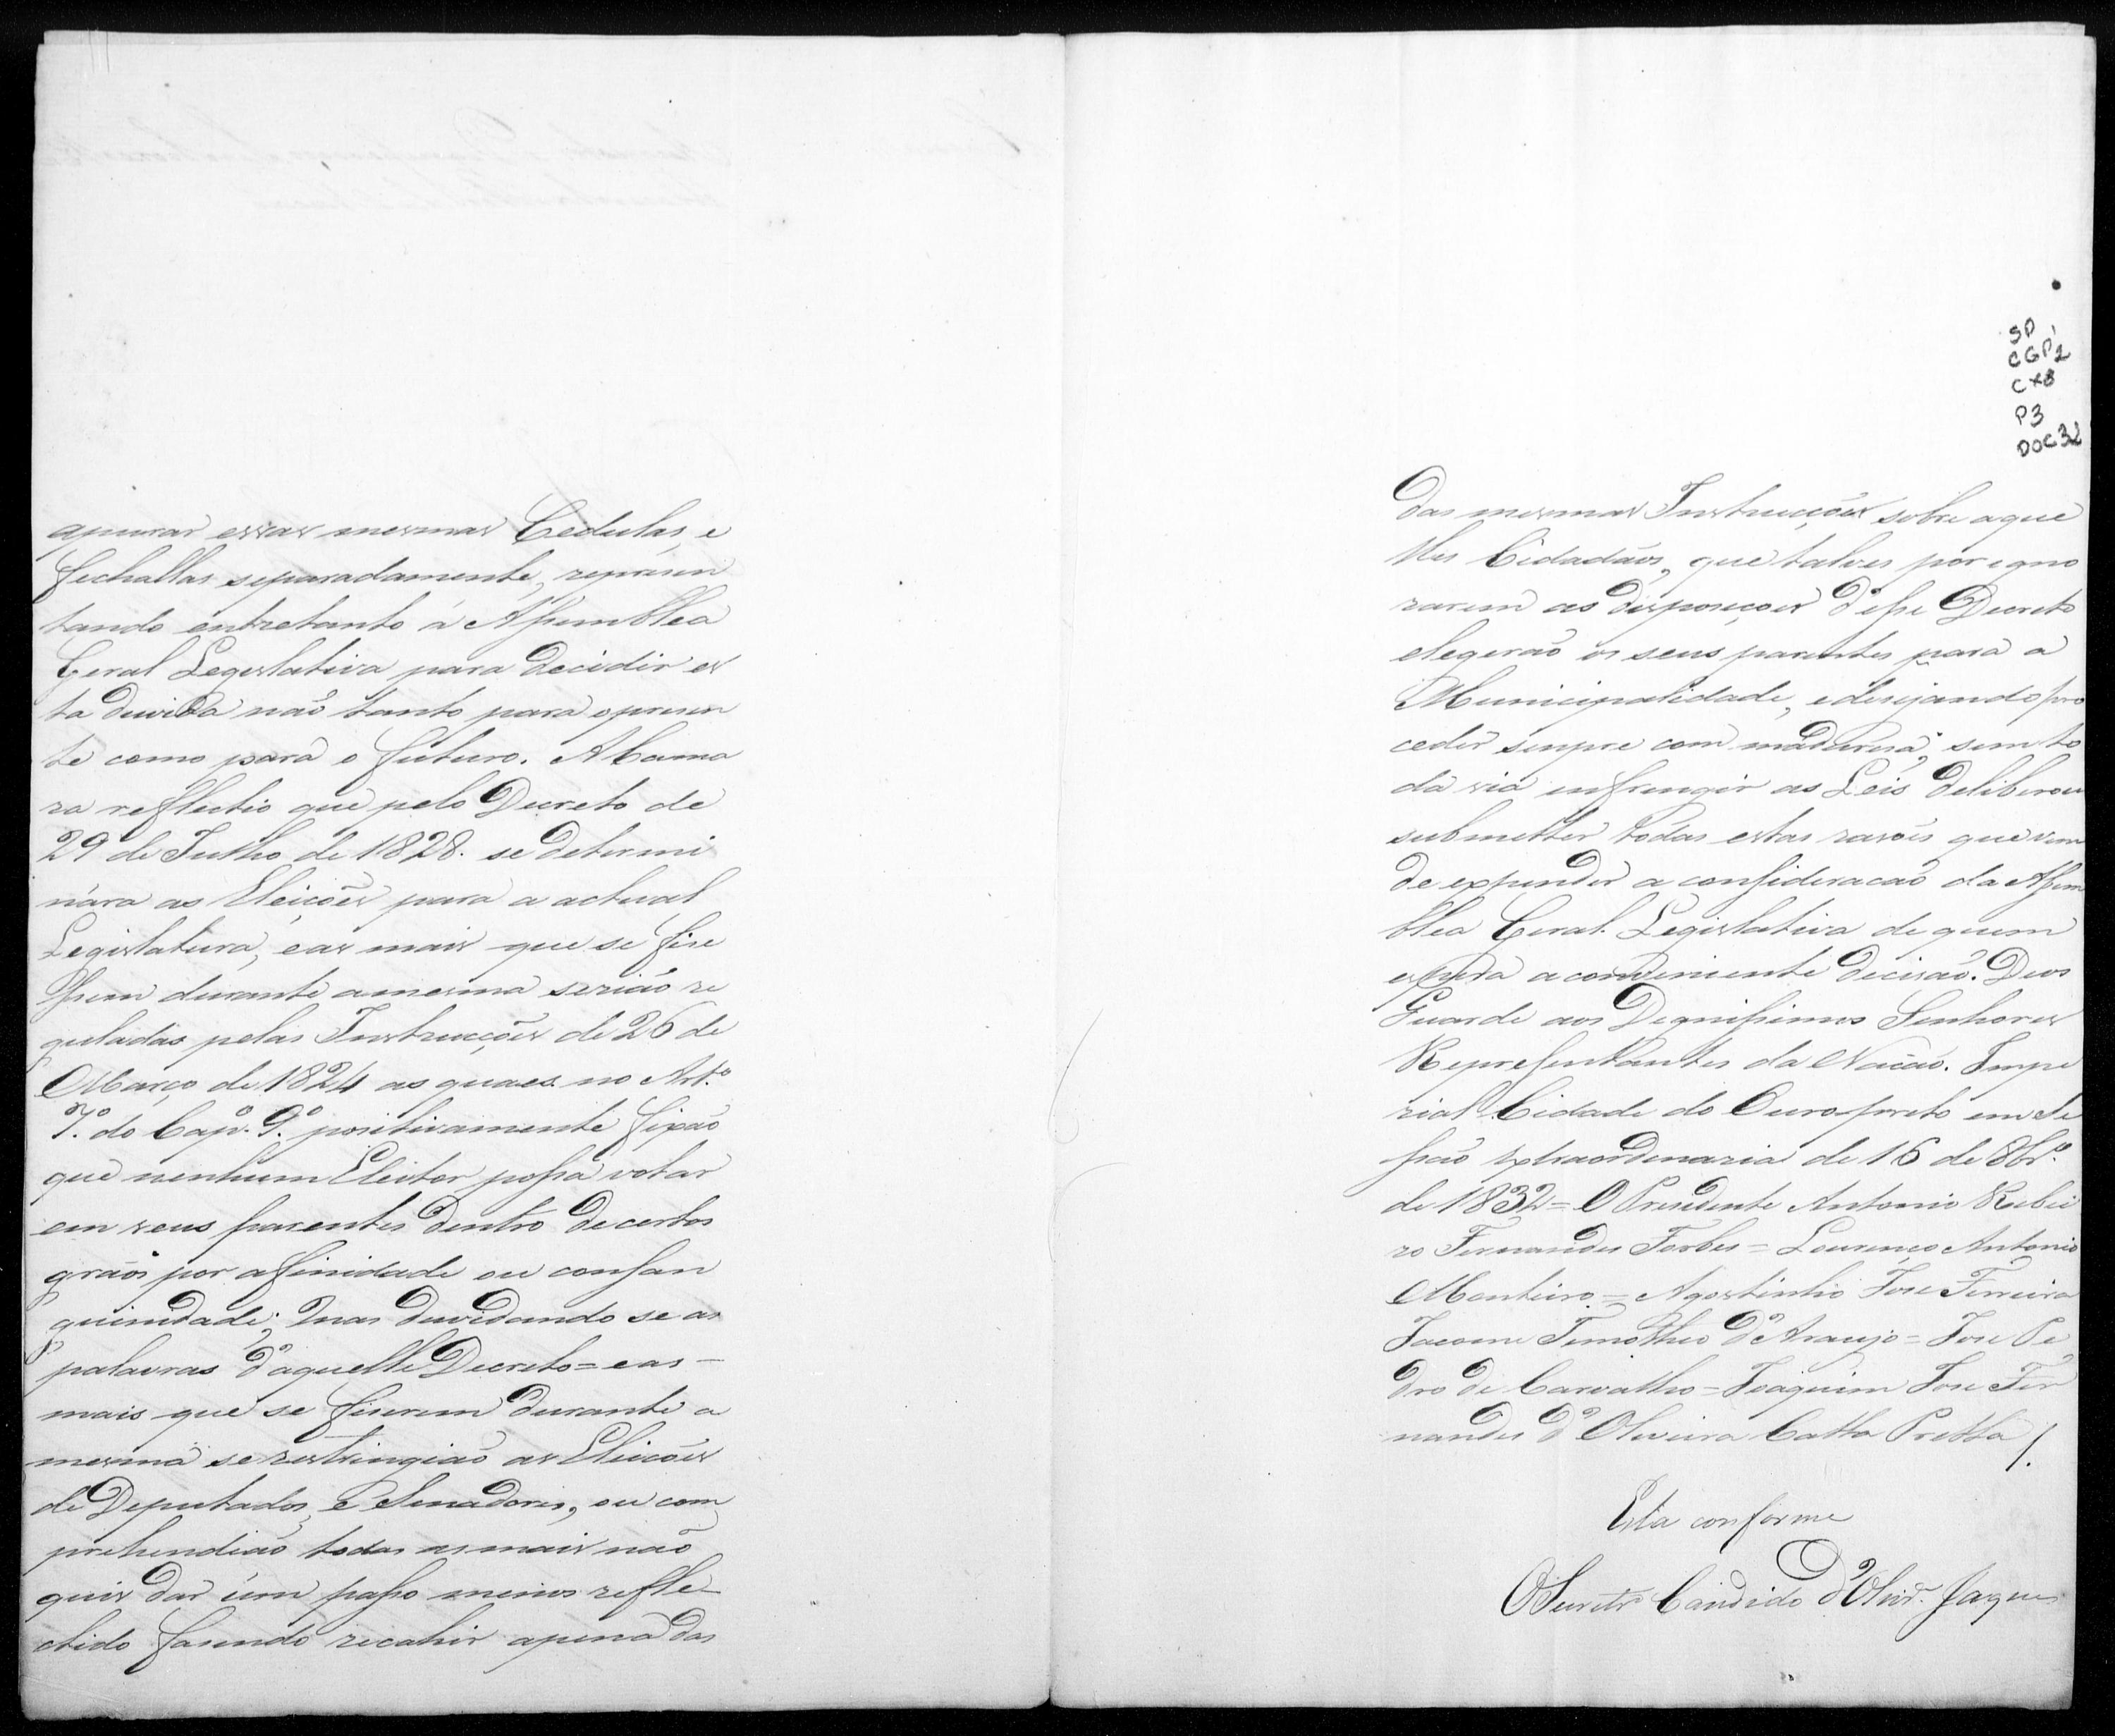 apurar essas mesmas Cedulas, e
fechallas separadamente, represen
tando entretanto á Assemblea
Geral Legislativa para decidir es
ta duvida não tanto para o presen
te como para o futuro. A Cama
ra reflectio que pelo Decreto de
29 de Julho de 1828. se determi
nára as Eleições para a actual
Legislatura, e as mais que se fise
ssem durante a mesma serião re
guladas pelas Instrucções de 26 de
Março de 1824 as quaes no Art.º
7.º do Cap. 9.º positivamente fixão
que nenhum Eleitor possa votar
em seus parentes dentro de certos
gráos por afinidade ou consan
guinidade; Mas duvidando se as
palavras d'aquelle Decreto = e as -
mais que se fiserem durante a
mesma se restringião as Eleições
de Deputados, e Senadores, ou com
prehendião todas as mais não
quis dar um passo menos refle-
ctido fasendo recahir a pena das
SP
CGP, 2
CX8
P3
DOC32
das mesmas Instrucções sobre aque
lles Cidadãos, que talves por igno
rarem as disposiçoes d'esse Decreto
elegerão os seus parentes para a
Municipalidade, e desejando pro
ceder sempre com maduresa, sem to
da via enfrengir as Leis deliberou
submetter todas estas rasões que vem
de expender a consideracaõ da Assem
blea Geral Legislativa de quem
espera a conveniente decisaõ. Deos
Guarde aos Dignissimos Senhores
Representantes da Nacaõ. Impe
rial Cidade do Ouro preto em Se
ssão extraordenaria de 16 de 8br.º
de 1832 = O Presidente Antonio Rubei
ro Fernandes Forbes = Lourenço Antonio
Monteiro = Agostinho Jose Ferreira
Jacome Timotheo d'Araujo = Jose Pe
dro de Carvalho = Joaquim Jose Fer
nandes d'Oliveira Catta Pretta /.
Esta conforme
O Secretr.º Candido d'Olivr.ª Jaques